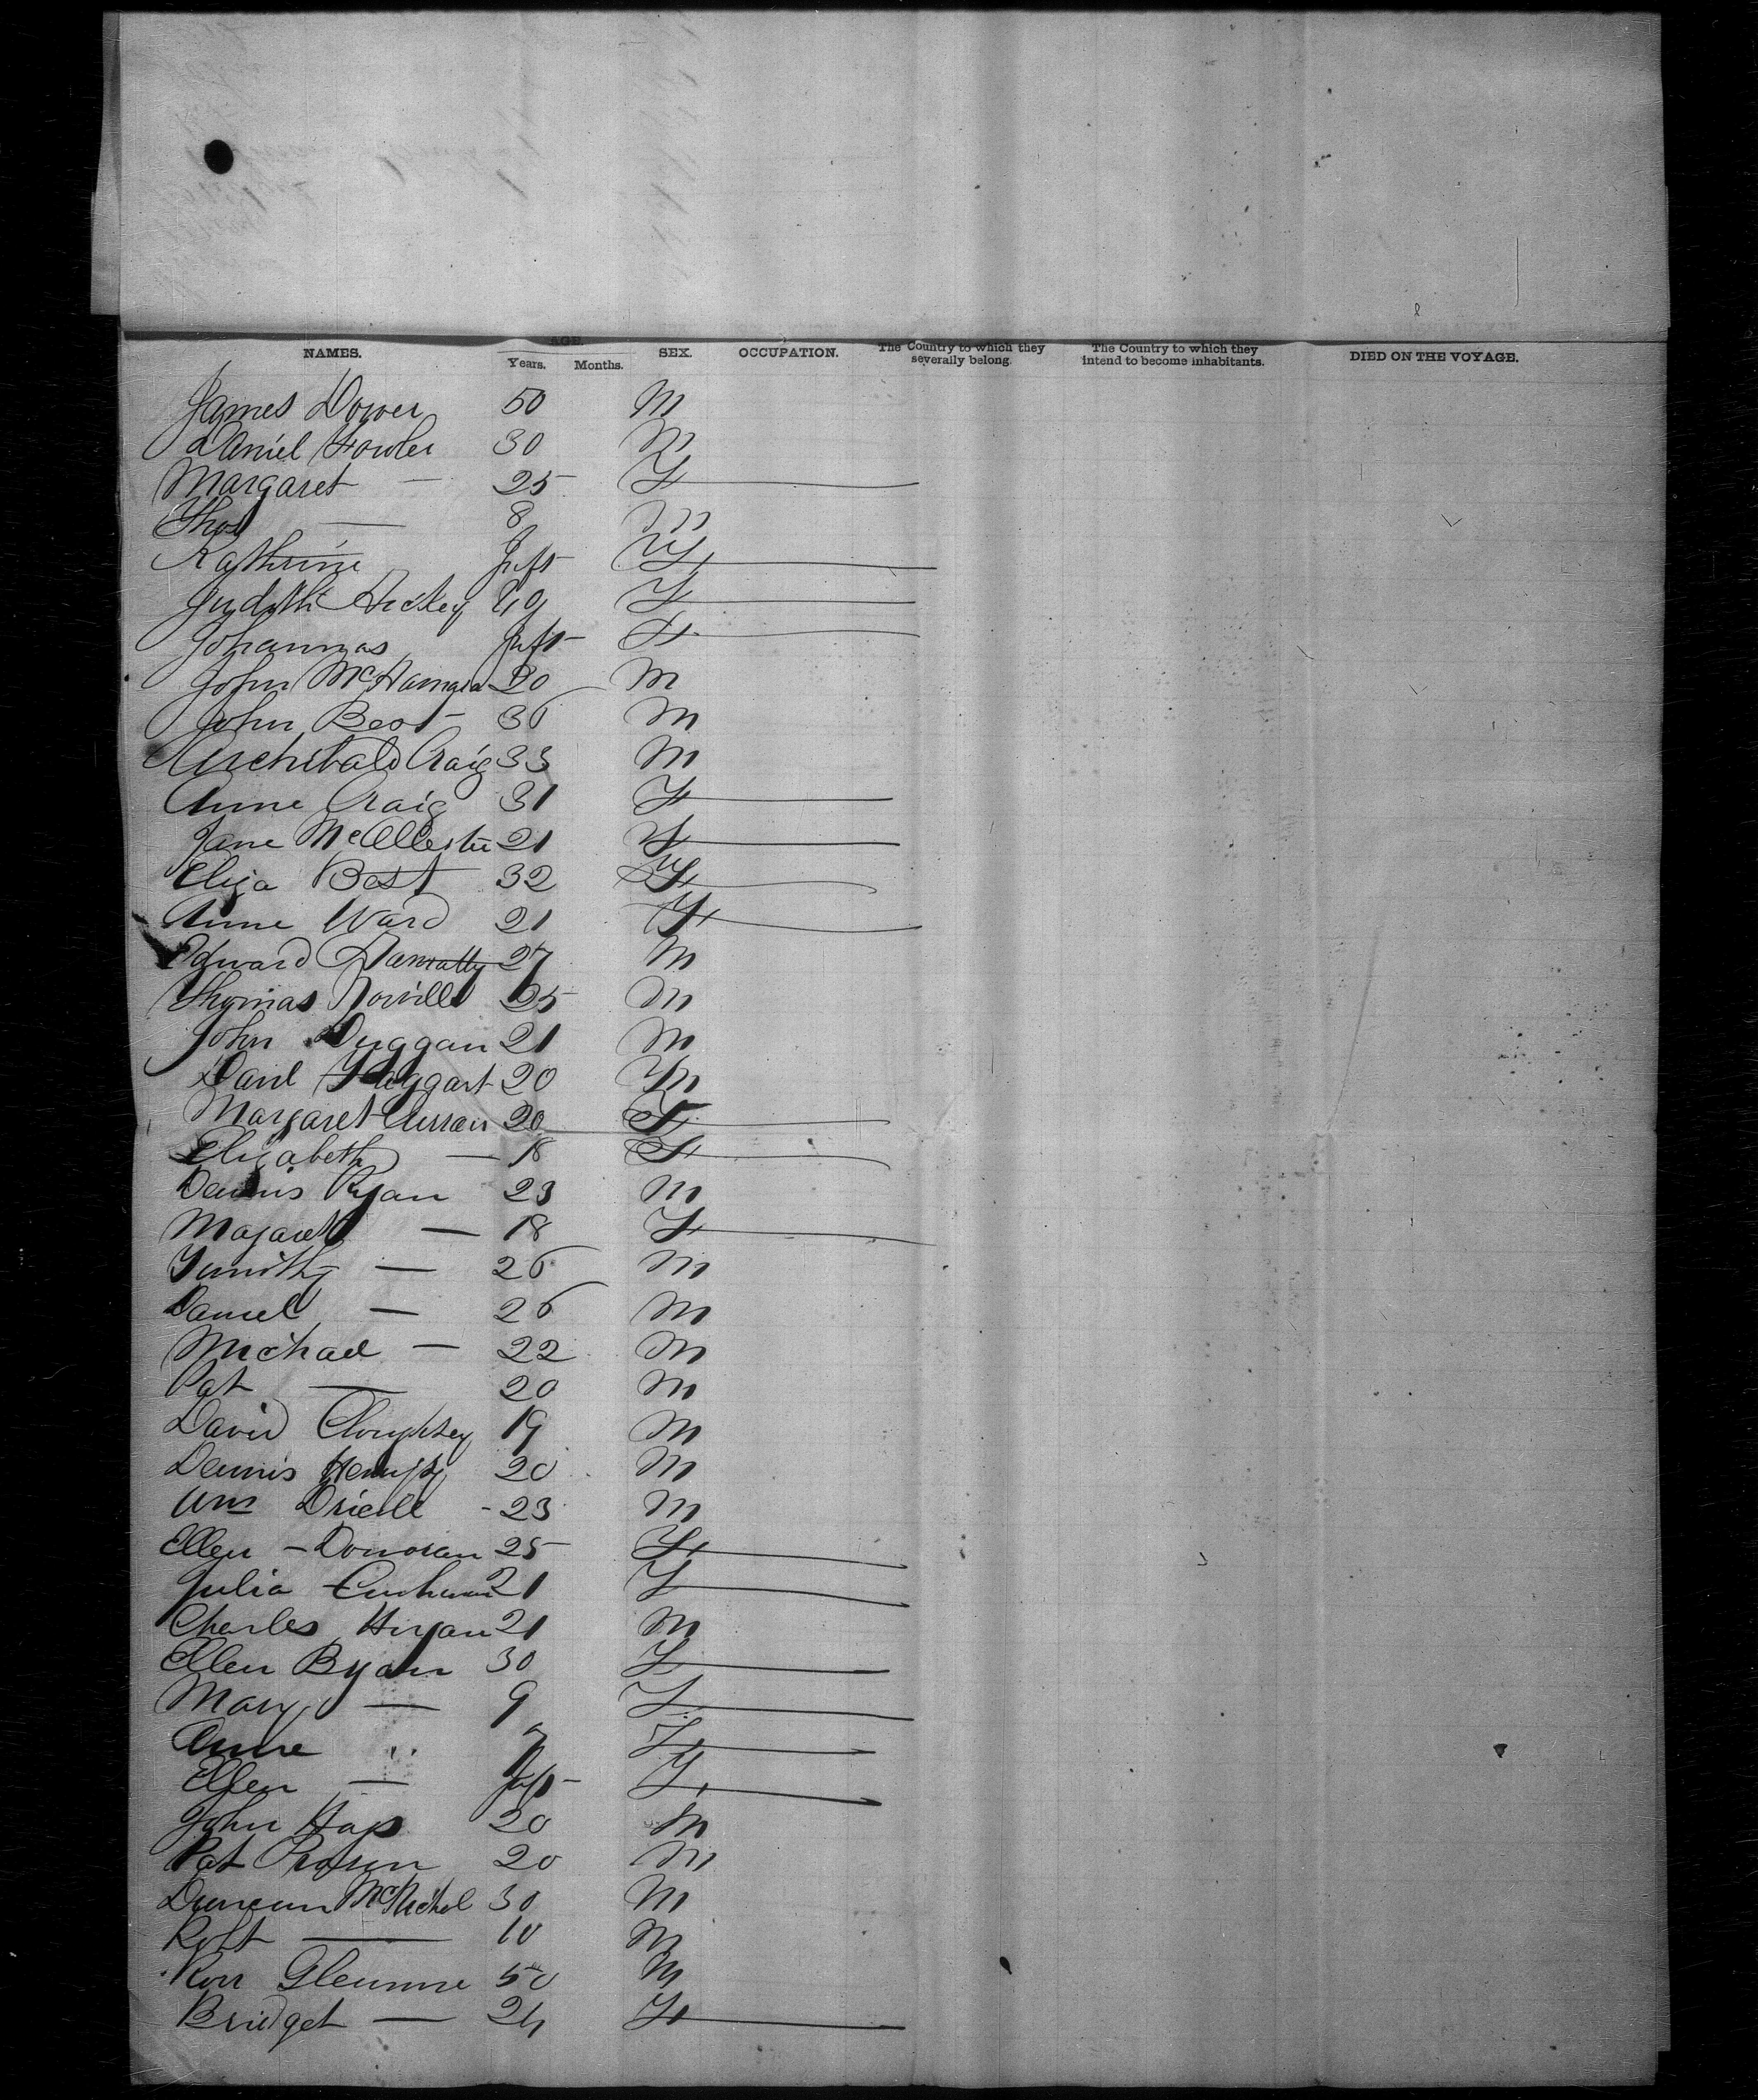 NAMES. AGE. Years. Months. SEX. OCCUPATION. The Country to which they severally belong. The Country to which they intend to become inhabitants. DIED ON THE VOYAGE.
James Dower 50 M
Daniel Fowler 30 M
Margaret — 25 F
Thos — 8 M
Kathrine Inft F
Judith Hickey 40 F
Johannas Inft F
John 30 M
John Best 36 M
Archibald Craig 33 M
Anne Craig 31 F
Jane McAllester 21 F
Eliza Best 32 F
Anne Ward 21 F
Edward 27 M
Thomas 25 M
John Duggan 21 M
Danl Haggart 20 M
Margaret Curran 20 F
Elizabeth — 18 F
Dennis Ryan 23 M
Magaret — 18 F
Timothy — 26 M
Daniel — 26 M
Michael — 22 M
Pat — 20 M
David 19 M
Dennis 20 M
Wm - 23 M
Ellen - Donovan 25 F
Julia 21 F
Charles 21 M
Ellen Ryan 30 F
Mary — 9 F
Anne " 7 F
Ellen — Inft F
John Hays 20 M
Pat 20 M
Duncan McNichol 30 M
Robt — 10 M
50 M
Bridget — 24 F